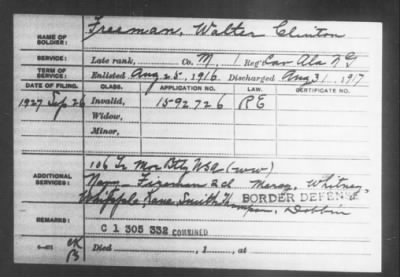 NAME OF SOLDIER: Freeman, Walter Clinton
SERVICE: Late rank, Co. M, 1 Reg't Cav Ala N G
TERM OF SERVICE: Enlisted Aug 25, 1916 Discharged Aug 31, 1917
DATE OF FILING. CLASS. APPLICATION NO. LAW. CERTIFICATE NO.
1927 Sep 26 Invalid, 1592726 PE
Widow,
Minor,
ADDITIONAL SERVICES: 106 Tr Mor Bty USA (ww)
Navy - Fireman 2cl Mercy, Whitney,
Kane Smith Thompson, Dobbin
BORDER DEFENSE
REMARKS: C 1 305 332 COMBINED
Died , 1 , at